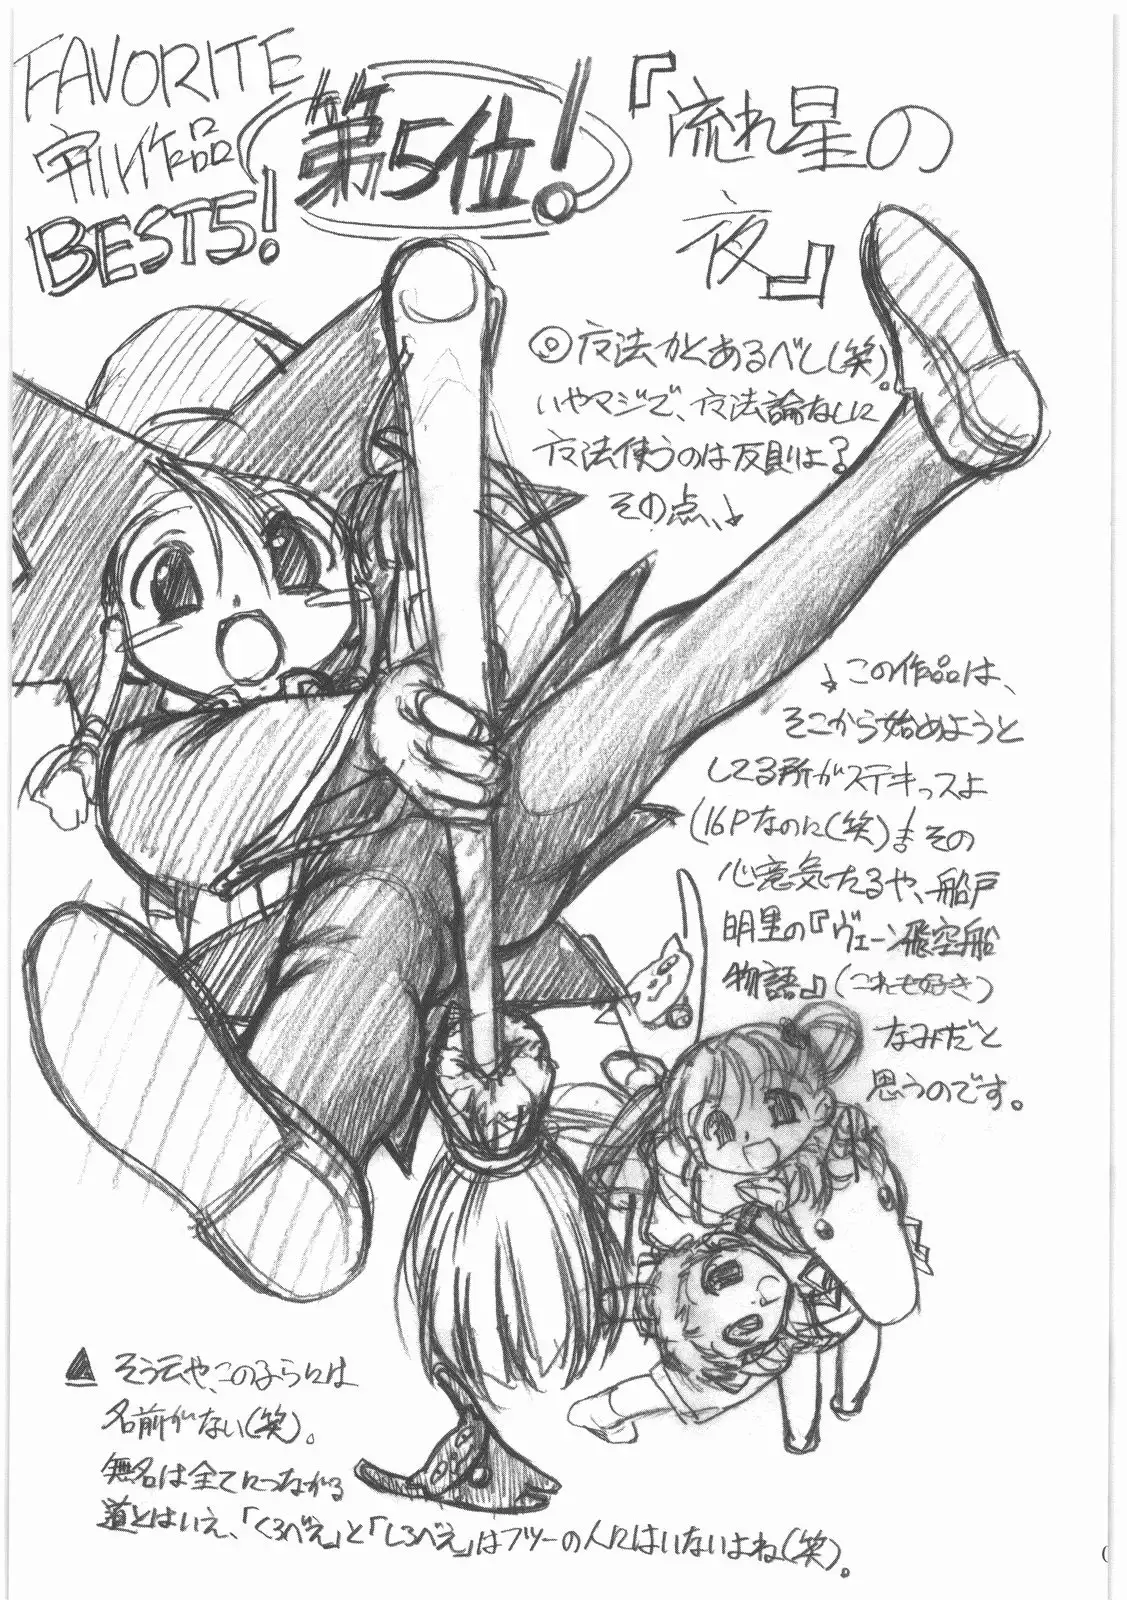 FAVORITE
創作品
BEST5!
第5位!
『流れ星の
夜』
◎方法かとあるべし(笑)。
いやマジで、方法論なしに
方法使うのは反則よ?
その点、↓
↓この作品は、
そこから始めようと
してる所がステキっスよ
(16Pなのに(笑)!その
心意気たるや、船戸
明里の『ヴェーン飛空船
物語』(これも好き)
なみだと
思うのです。
▲そう云や、この子らには
名前がない(笑)。
無名は全てにつながる
道とはいえ、「くろべえ」と「しろべえ」はフツーの人にはいないよね(笑)。